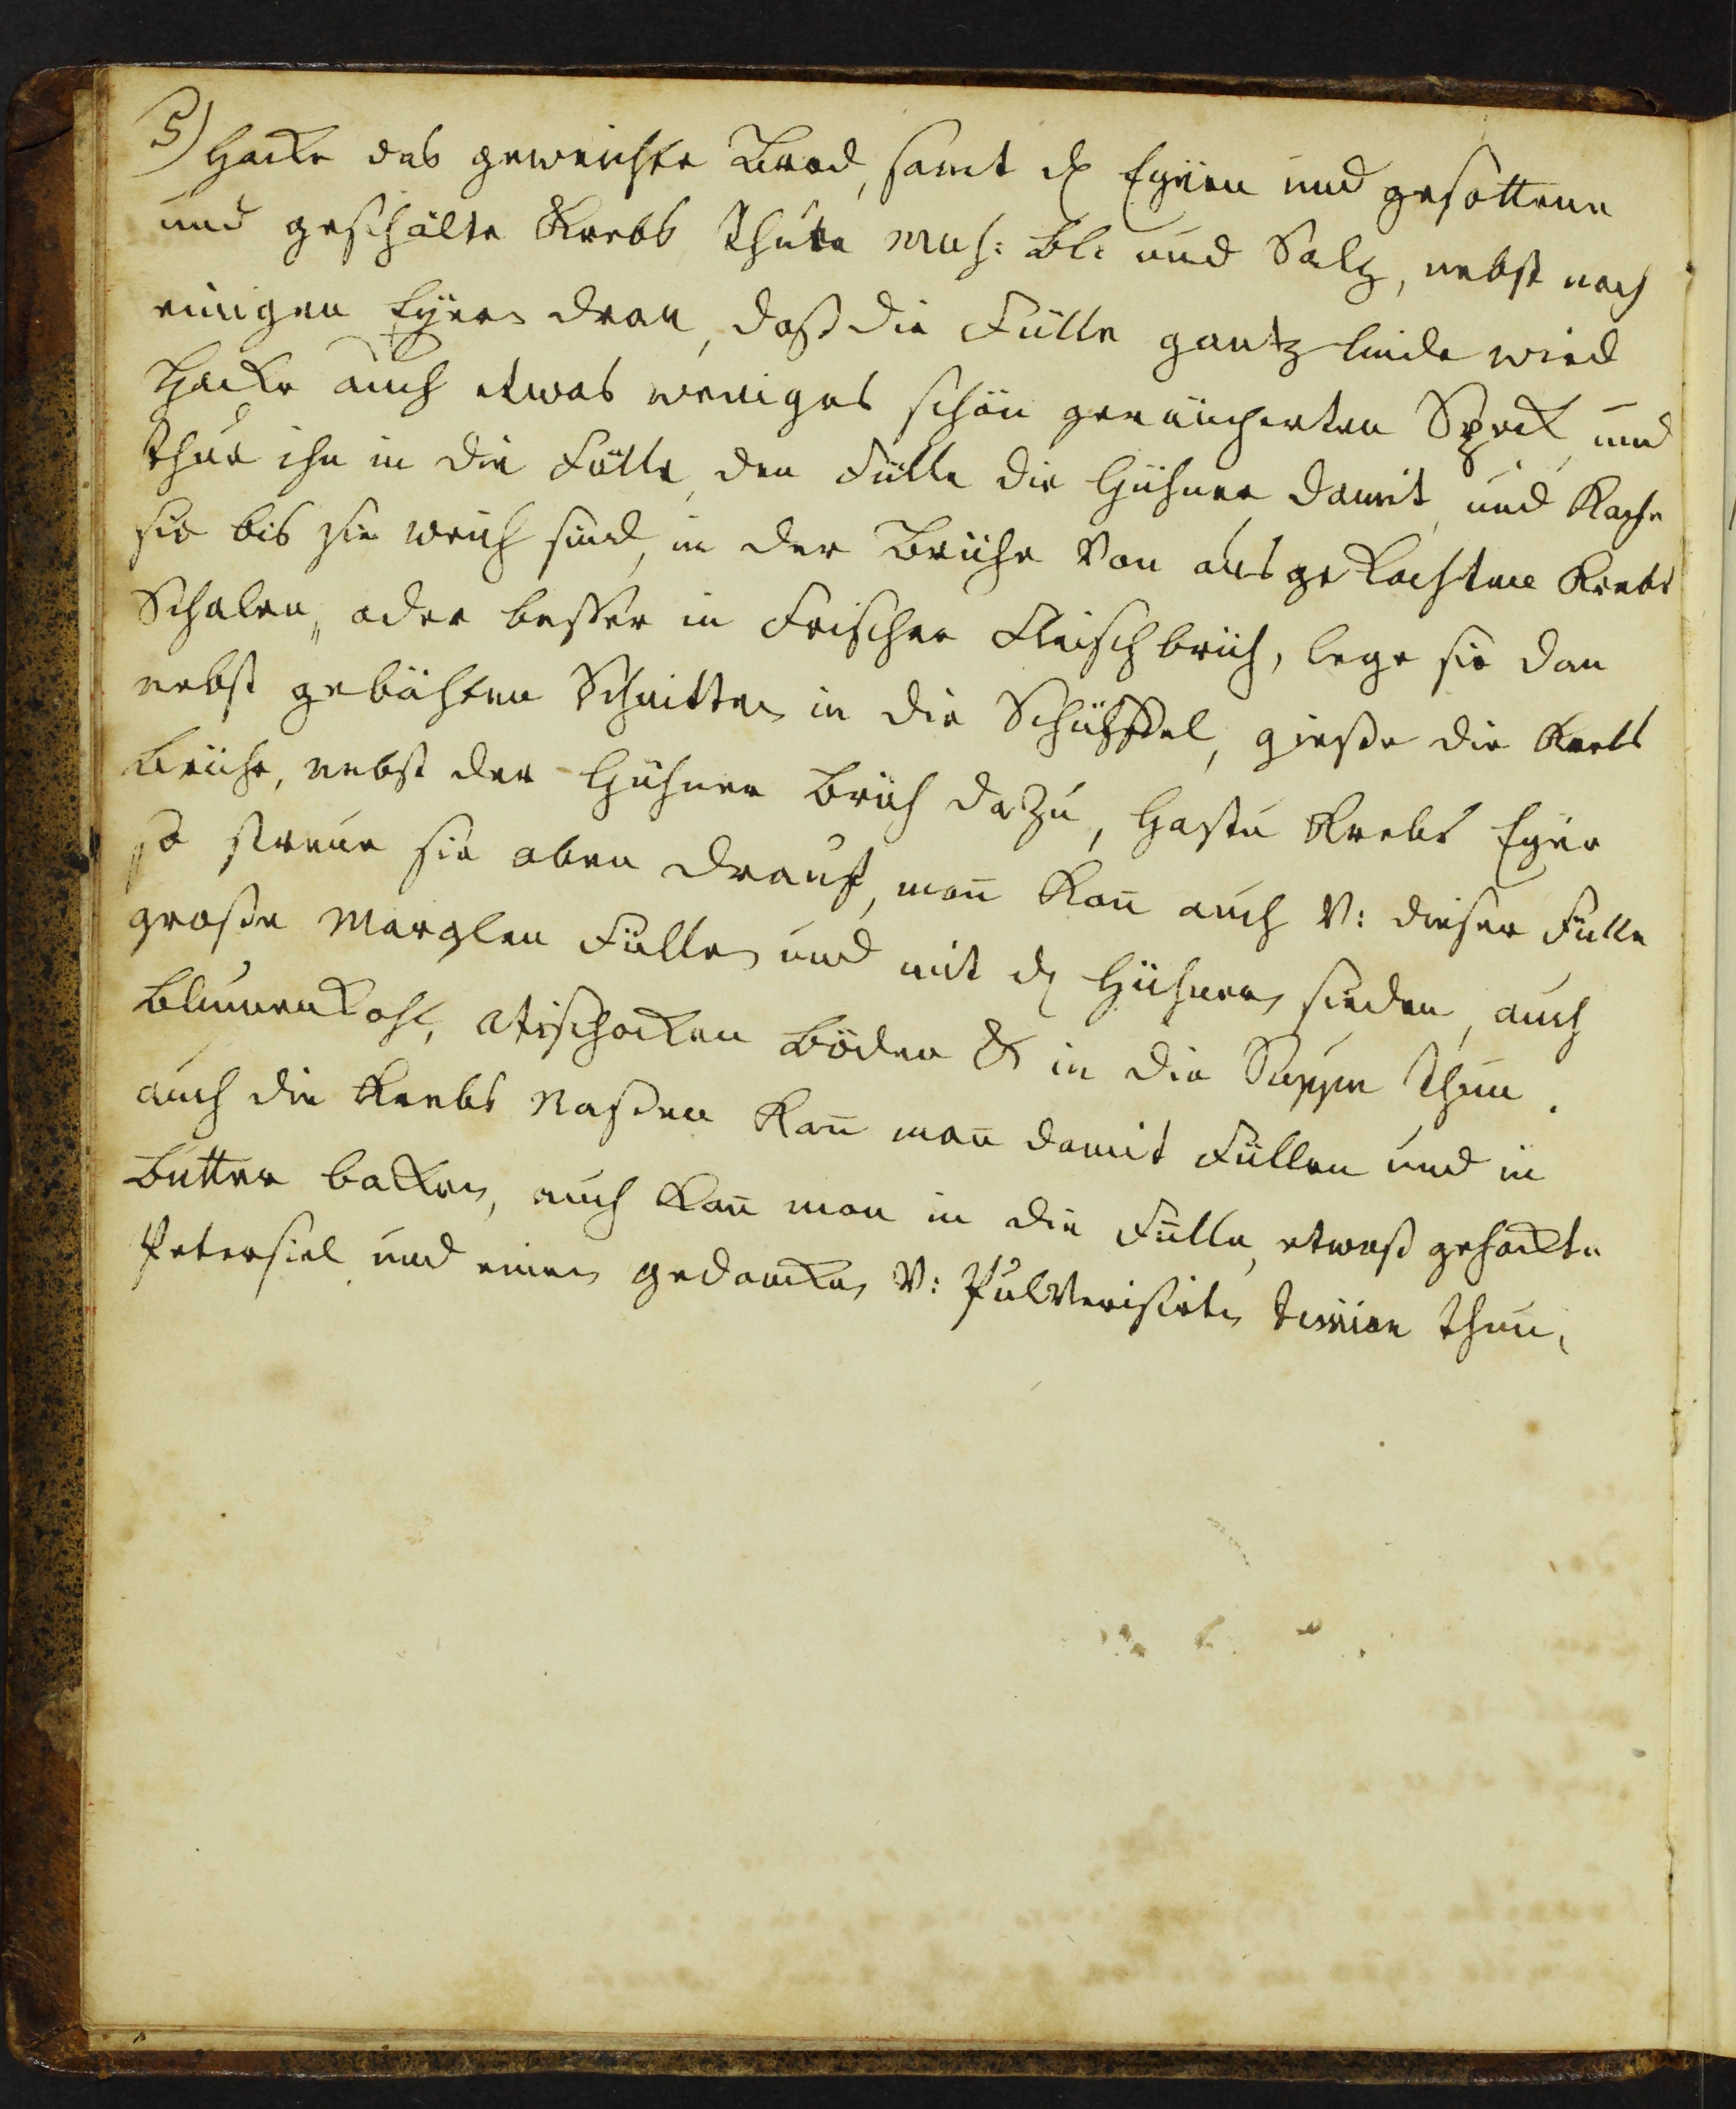 5) Hacke das geweichte Brod, samt d. Eyern und gesottene
und geschälte Krebs thue Mus: Bl: und Salz, nebst noch
einigen Eyern dran, daß die Fülle gantz linde wird
Hacke auch etwas weniges schön geräucherten Speck und
thue ihn in die Fülle, den Fülle die Hühner damit und Koche
sie bis sie weich sind, in der Brühe Von ausgekochten Krebs
Schalen, oder besser in Frischer Fleischbrüh, lege sie dan
nebst gebähten Schnitten in die Schüssel, gieße die Krebs
Brühe, nebst der Hühner Brüh dazu, Hastu Krebs Eyer
so streue sie oben drauf, man̄ Kan̄ auch V: dieser Fülle
große Morglen Füllen und mit d. Hühnern sieden, auch
Blumenkohl, Atischocken Böden & in die Suppe thun.
auch die Krebs Naßen Kan̄ man̄ damit Füllen und in
Butter backen, auch Kan̄ man in die Fülle, etwaß gehackte
Petersiel und einen gedörrten V: Pulverisirten timian thun,